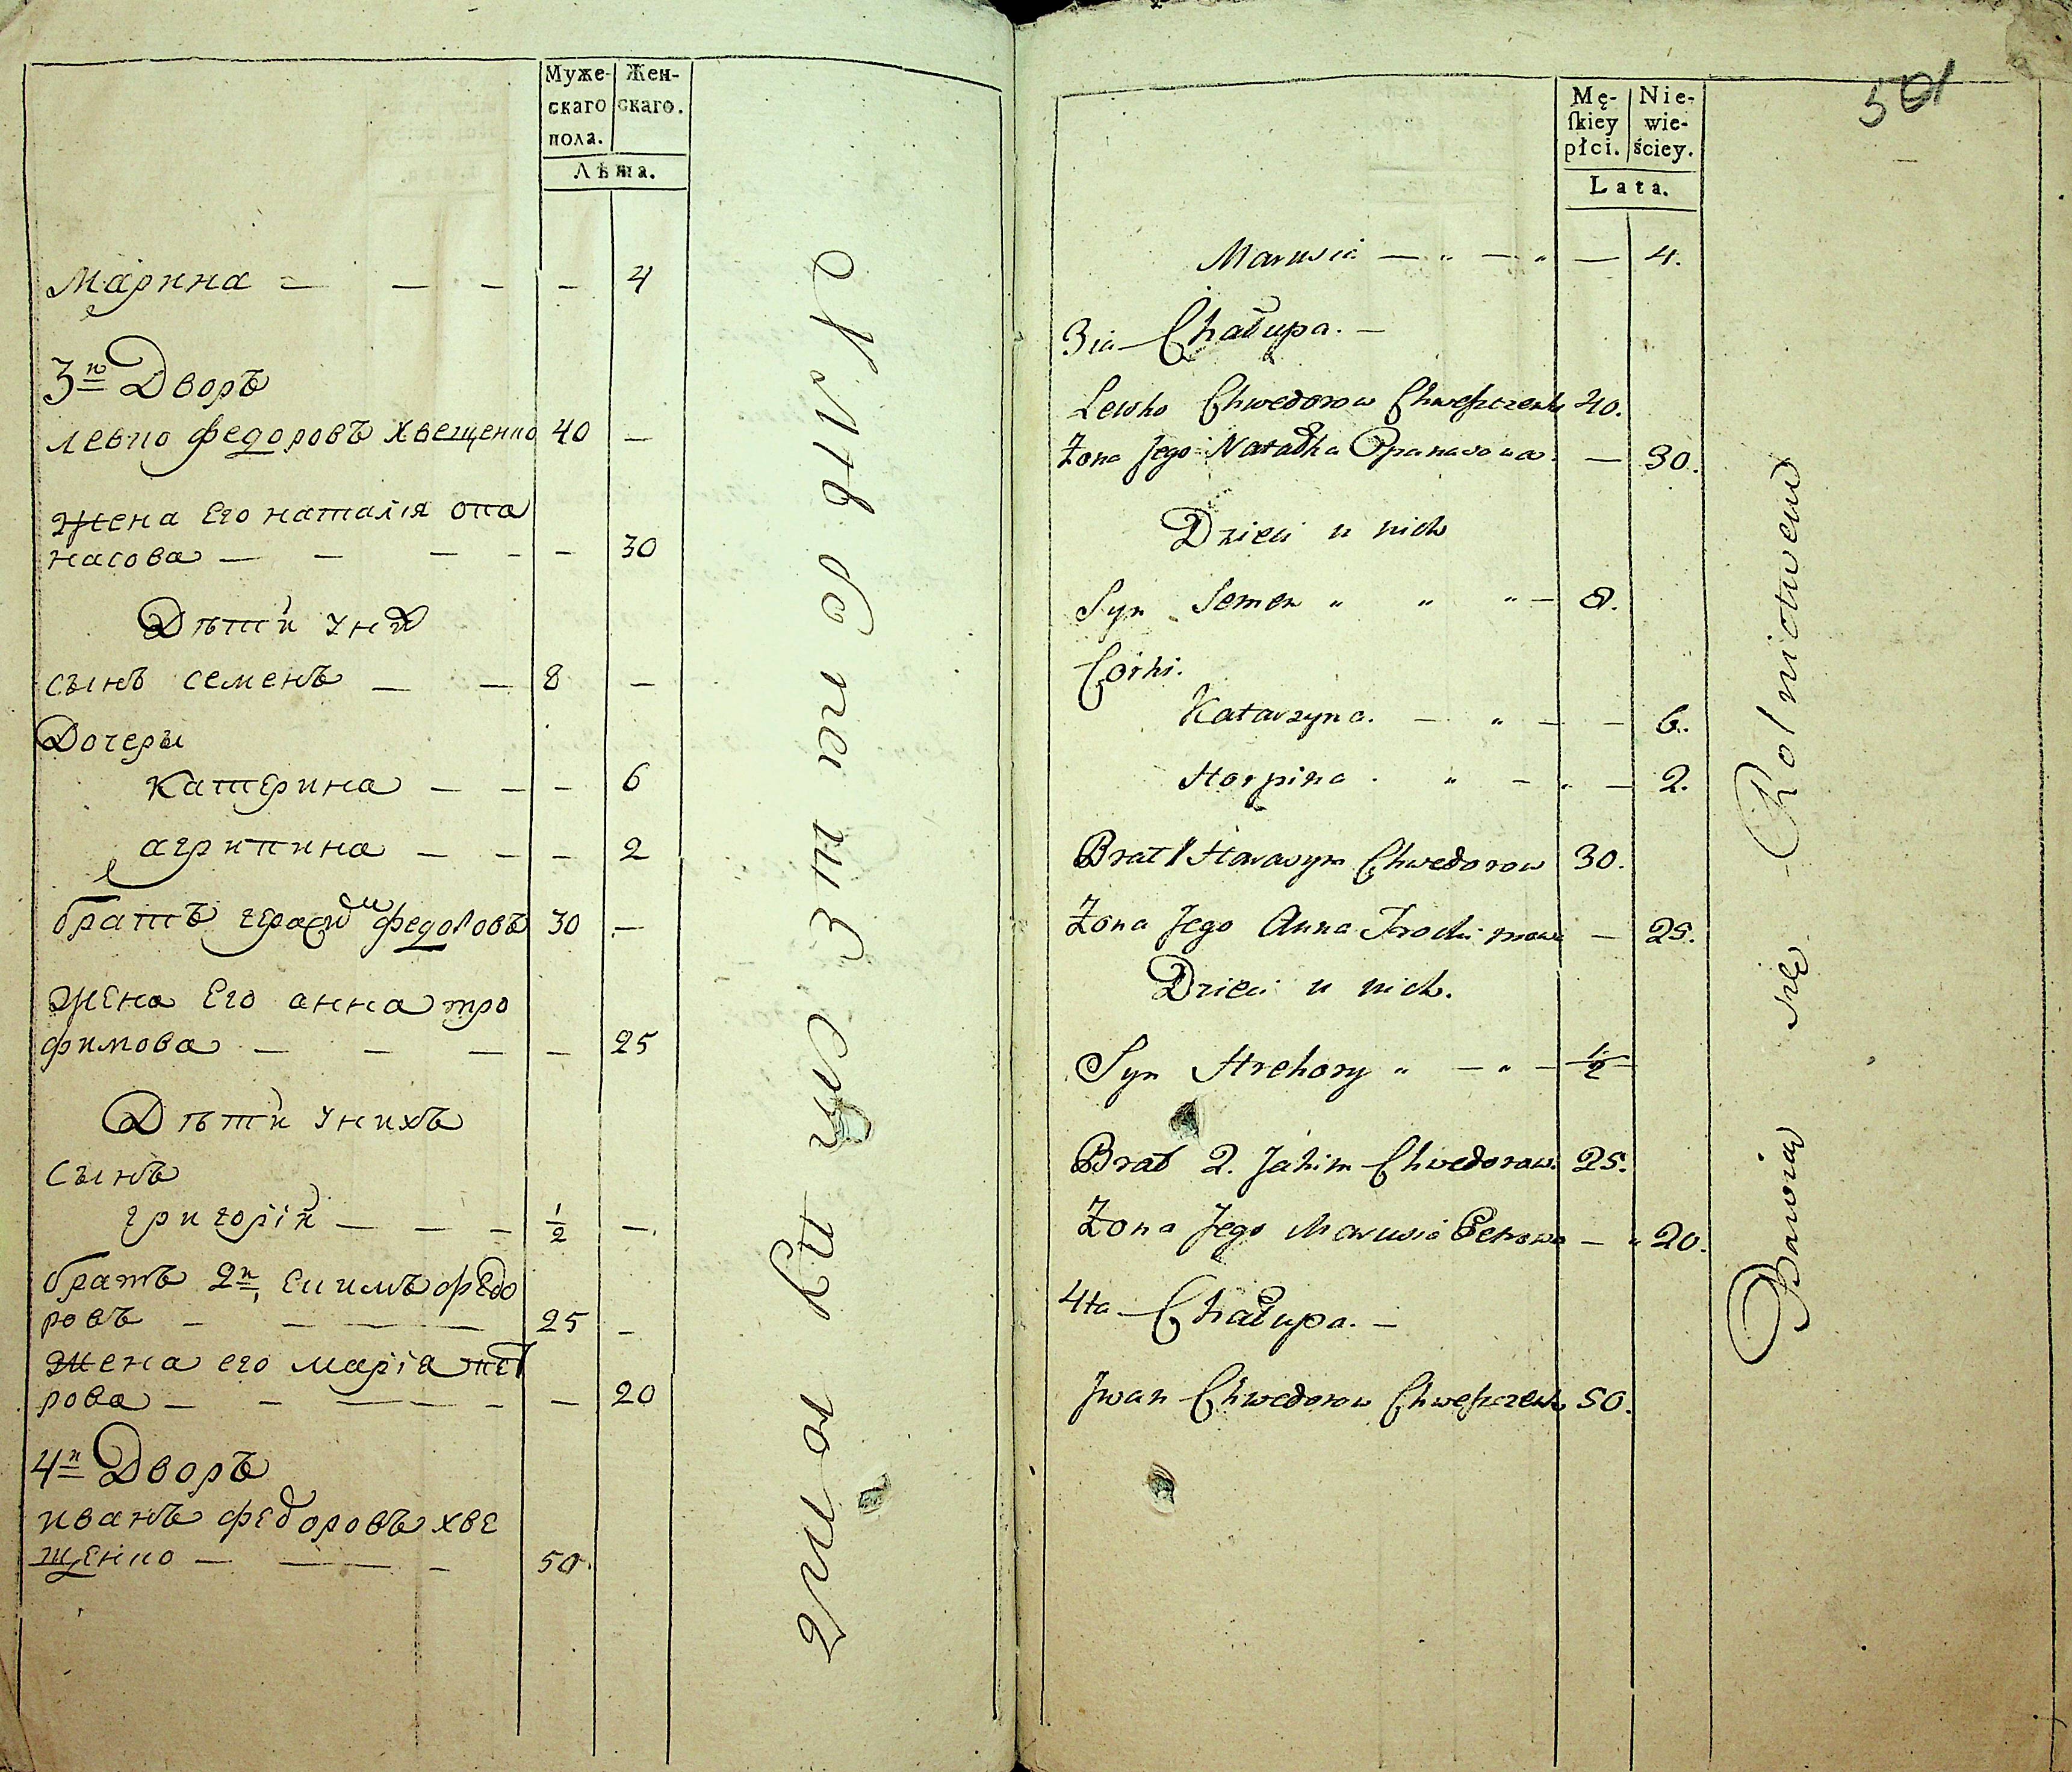 Муже-
скаго
пола.
Жен-
скаго.
Лѣта.
Марина — — — — 4
3й Дворъ
левко федоровъ хвещенко 40 —
Жена Его наталія опа
насова — — — — — 30
Дѣти у них
сынъ семенъ — — 8 —
Дочеры
Катерина — — — 6
агрипина — — — 2
братъ герасим федоровъ 30 —
Жена Его анна тро
фимова — — — — 25
Дѣти у нихъ
Сынъ
григорій — — — ½ —
братъ 2й Екимъ федо
ровъ — — — 25 —
Жена его марія пет
рова — — — — — 20
4й Дворъ
иванъ федоровъ хве
щенко — — — 50.
501
Mę-
ſkiey
płci.
Nie-
wie-
ściey.
Lata.
Marusia — „ — „ — 4.
3ia Chałupa. —
Lewko Chwedorow Chweszczenko 40.
Żona Jego Natałka Opanasowa. — 30.
Dzieci u nich
Syn Semen „ „ „ — 8.
Córki.
Katarzyna. — „ — — 6.
Horpina . „ — „ — 2.
Brat 1 Harasym Chwedorow 30.
Żona Jego Anna Trochimowa — 25.
Dzieci u nich.
Syn Hrehory „ — „ — ½
Brat 2. Jakim Chwedorow. 25.
Żona Jego Marusia Petrowa — „ 20.
4ta Chałupa. —
Jwan Chwedorow Chweszczenko 50.
Bawią się Rolnictwem